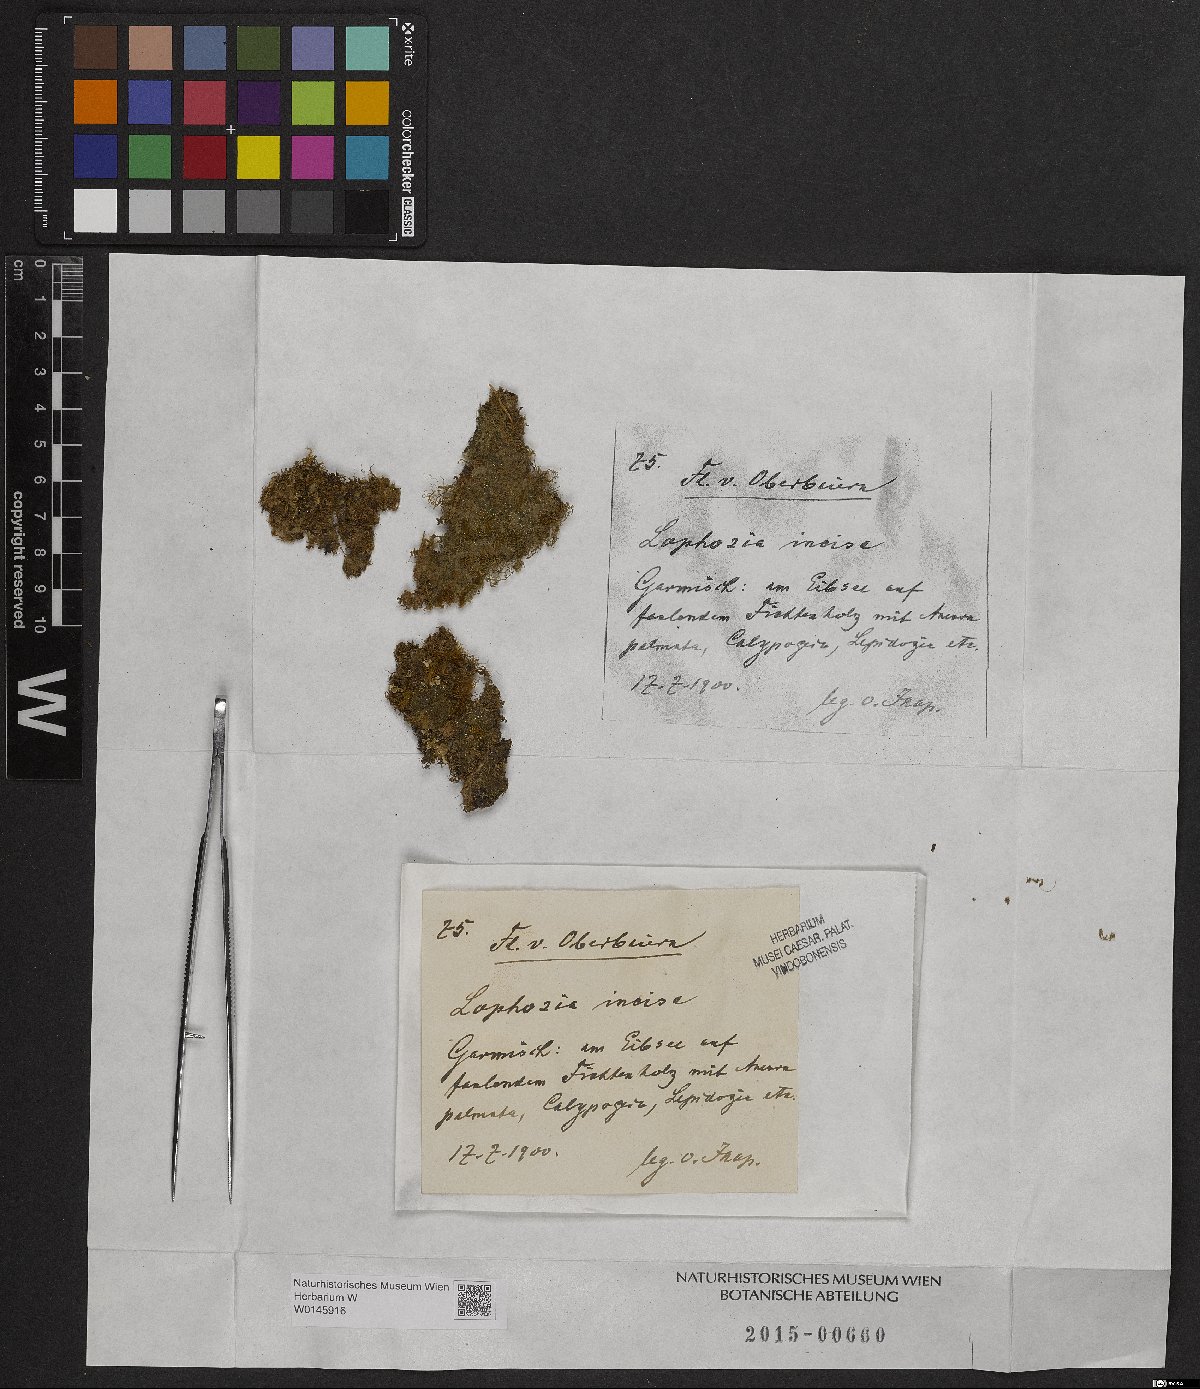 xrite
colorchecker CLASSIC
mm
0 1 2 3 4 5 6 7 8 9 10
cm
copyright reserved
W
75.
Fl. v. Oberbaiern
Lophozia incisa
Garmisch: am Eibsee auf
faulendem Fichtenholz mit Aneura
palmata, Calypogeia, Lepidozia etc.
17.7.1900.
leg. O.
75.
Fl. v. Oberbaiern
Lophozia incisa
Garmisch: am Eibsee auf
faulendem Fichtenholz mit Aneura
palmata, Calypogeia, Lepidozia etc.
17.7.1900.
leg. O.
HERBARIUM
MUSEI CAESAR. PALAT.
VINDOBONENSIS
Naturhistorisches Museum Wien
Herbarium W
W0145916
NATURHISTORISCHES MUSEUM WIEN
BOTANISCHE ABTEILUNG
2015-00660